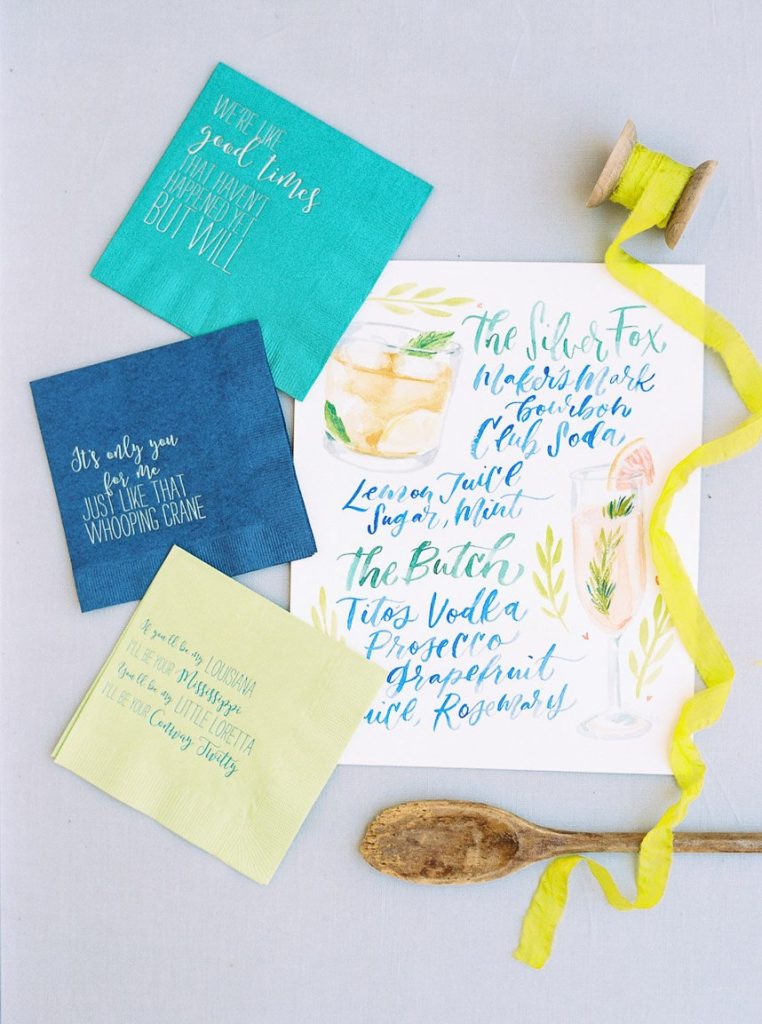 WE'RE LIKE
good times
THAT HAVEN'T
HAPPENED YET
BUT WILL
It's only you
for me
JUST LIKE THAT
WHOOPING CRANE
If you'll be my LOUISIANA
I'LL BE YOUR Mississippi
You'll be my LITTLE LORETTA
I'LL BE YOUR Conway Twitty
The Silver Fox
Maker's Mark
bourbon
Club Soda
Lemon Juice
Sugar, Mint
The Butch
Tito's Vodka
Prosecco
grapefruit
uice, Rosemary